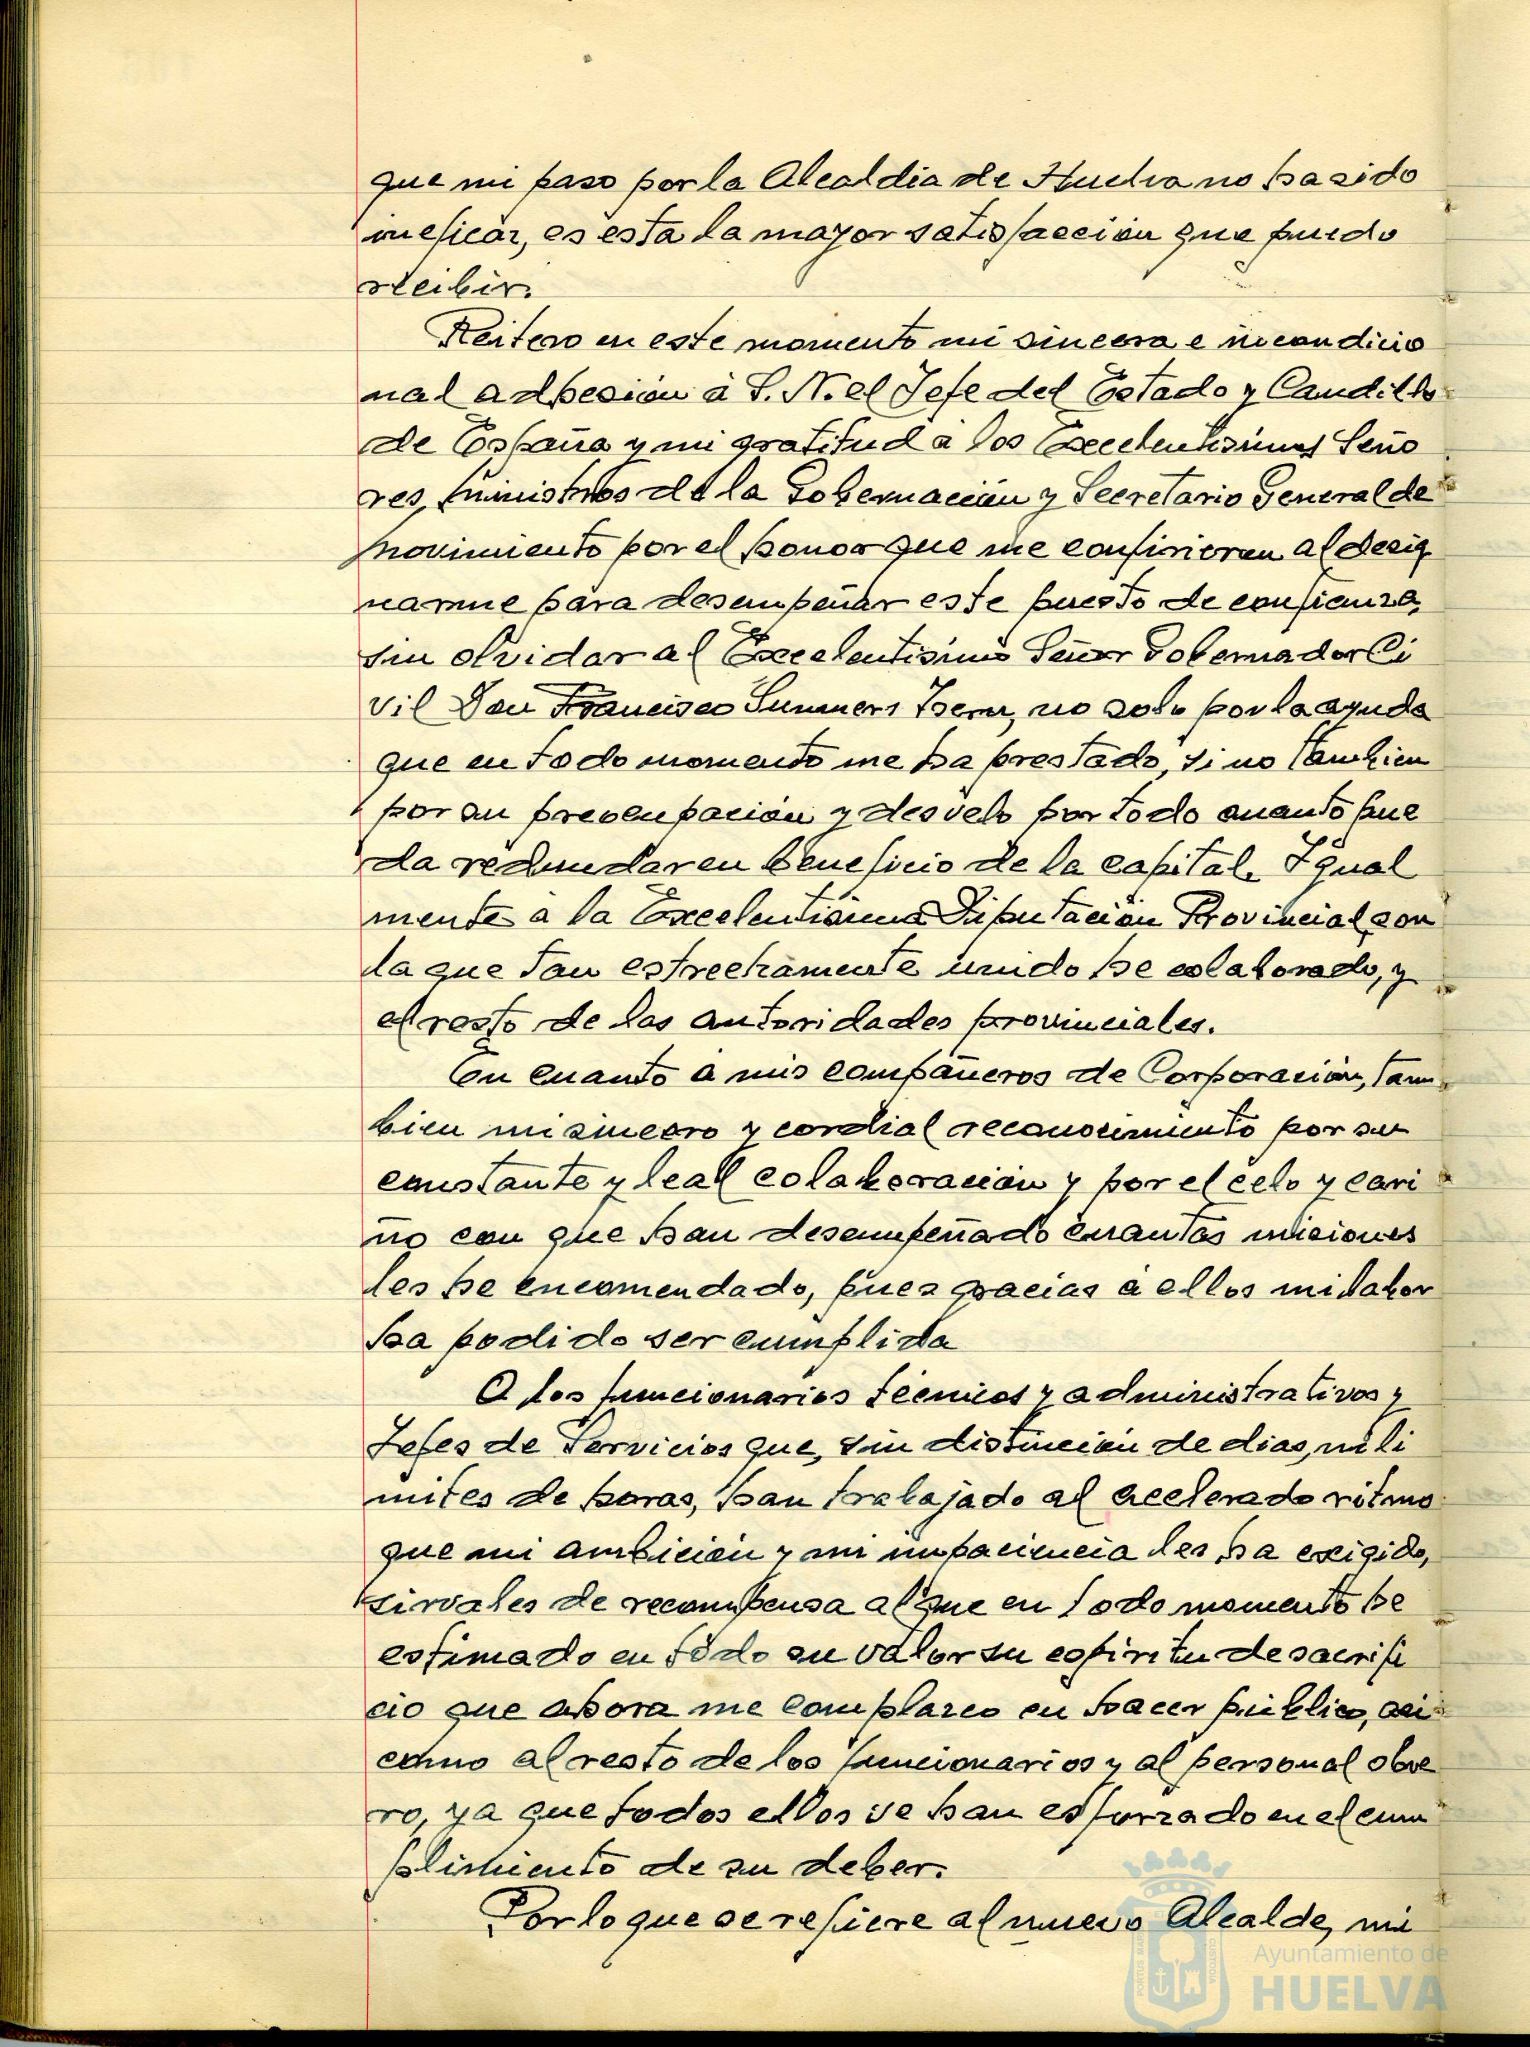 que mi paso por la Alcaldia de Huelva no ha sido
ineficaz, es esta la mayor satisfacción que puedo
recibir.
Reitero en este momento mi sincera e incondicio
nal adhesión á S. N. el Jefe del Estado y Caudillo
de España y mi gratitud á los Excelentísimos Seño
res Ministros de la Gobernación y Secretario General de
Movimiento por el honor que me confirieron al desig
narme para desempeñar este puesto de confianza,
sin olvidar al Excelentísimo Señor Gobernador Ci
vil Don Francisco Summers Isern, no solo por la ayuda
que en todo momento me ha prestado, si no tambien
por su preocupación y desvelo por todo cuanto pue
da redundar en beneficio de la capital. Igual
mente á la Excelentísima Diputación Provincial, con
la que tan estrechamente unido he colaborado, y
el resto de las autoridades provinciales.
En cuanto á mis compañeros de Corporación, tam
bien mi sincero y cordial reconocimiento por su
constante y leal colaboración y por el celo y cari
ño con que han desempeñado cuantas misiones
les he encomendado, pues gracias á ellos mi labor
ha podido ser cumplida
A los funcionarios técnicos y administrativos y
Jefes de Servicios que, sin distinción de dias, ni li
mites de horas, han trabajado al acelerado ritmo
que mi ambición y mi impaciencia les ha exigido,
sirvales de recompensa al que en todo momento he
estimado en todo su valor su espiritu de sacrifi
cio que ahora me complazco en hacer público, asi
como al resto de los funcionarios y al personal obre
ro, ya que todos ellos se han esforzado en el cum
plimiento de su deber.
Por lo que se refiere al nuevo Alcalde, mi
Ayuntamiento de
HUELVA